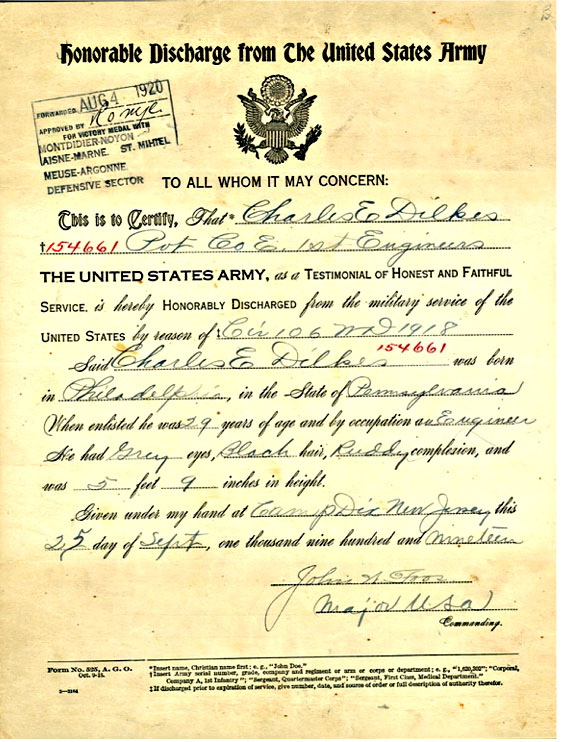 Honorable Discharge from The United States Army
FORWARDED AUG 4 1920
APPROVED BY
FOR VICTORY MEDAL WITH
MONTDIDIER-NOYON
AISNE-MARNE. ST. MIHIEL
MEUSE-ARGONNE
DEFENSIVE SECTOR
TO ALL WHOM IT MAY CONCERN:
This is to Certify, That* Charles E Dilkes
†154661 Pvt Co E. 1st Engineers
THE UNITED STATES ARMY, as a TESTIMONIAL OF HONEST AND FAITHFUL
SERVICE, is hereby HONORABLY DISCHARGED from the military service of the
UNITED STATES by reason of ‡ Cir 106 WD 1918
Said Charles E Dilkes 154661 was born
in Philadelphia, in the State of Pennsylvania
When enlisted he was 29 years of age and by occupation an Engineer
He had Grey eyes, Black hair, Ruddy complexion, and
was 5 feet 9 inches in height.
Given under my hand at Camp Dix New Jersey this
25 day of Sept, one thousand nine hundred and Nineteen
John
Major USA
Commanding.
Form No. 525, A. G. O.
Oct. 9-18.
3—3164
*Insert name, Christian name first; e. g., "John Doe."
†Insert Army serial number, grade, company and regiment or arm or corps or department; e. g., "1,620,302"; "Corporal,
Company A, 1st Infantry"; "Sergeant, Quartermaster Corps"; "Sergeant, First Class, Medical Department."
‡If discharged prior to expiration of service, give number, date, and source of order or full description of authority therefor.